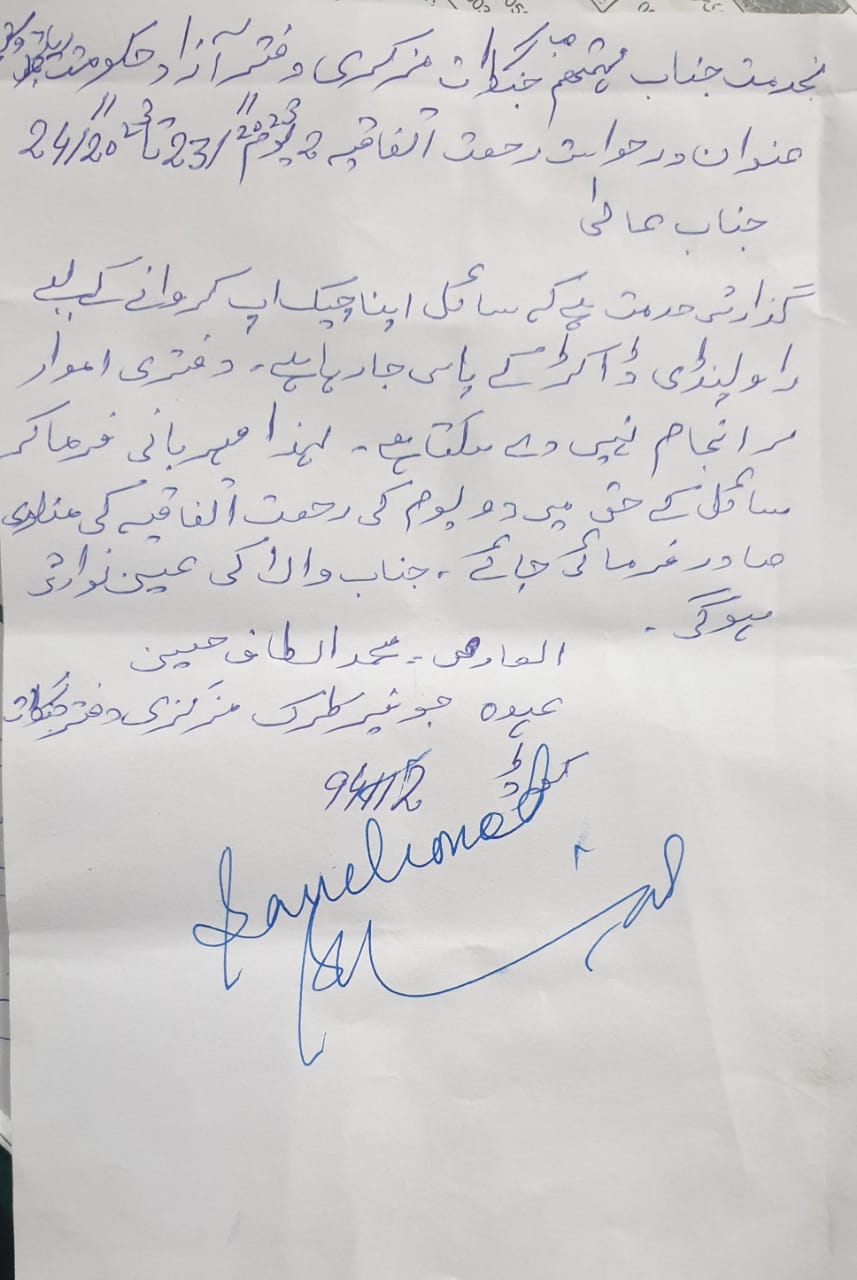 بخدمت جناب مہتمم صاحب جنگلات مرکزی دفتر آزاد حکومت ریاست
عنوان درخواست رخصت اتفاقیہ 2 یوم 23/11/2023 تا 24/11/2023
جناب عالی
گزارش خدمت ہے کہ سائل اپنا چیک اپ کروانے کے لیے
راولپنڈی ڈاکٹر کے پاس جا رہا ہے۔ دفتری اموار
سر انجام نہیں دے سکتا ہے۔ لہذا مہربانی فرما کر
سائل کے حق میں دو یوم کی رخصت اتفاقیہ کی منظوری
صادر فرمائی جائے۔ جناب والا کی عین نوازش
ہو گی۔
العارض۔ محمد الطاف حسین
عہدہ جونیر کلرک مرکزی دفتر جنگلات
Sanctioned